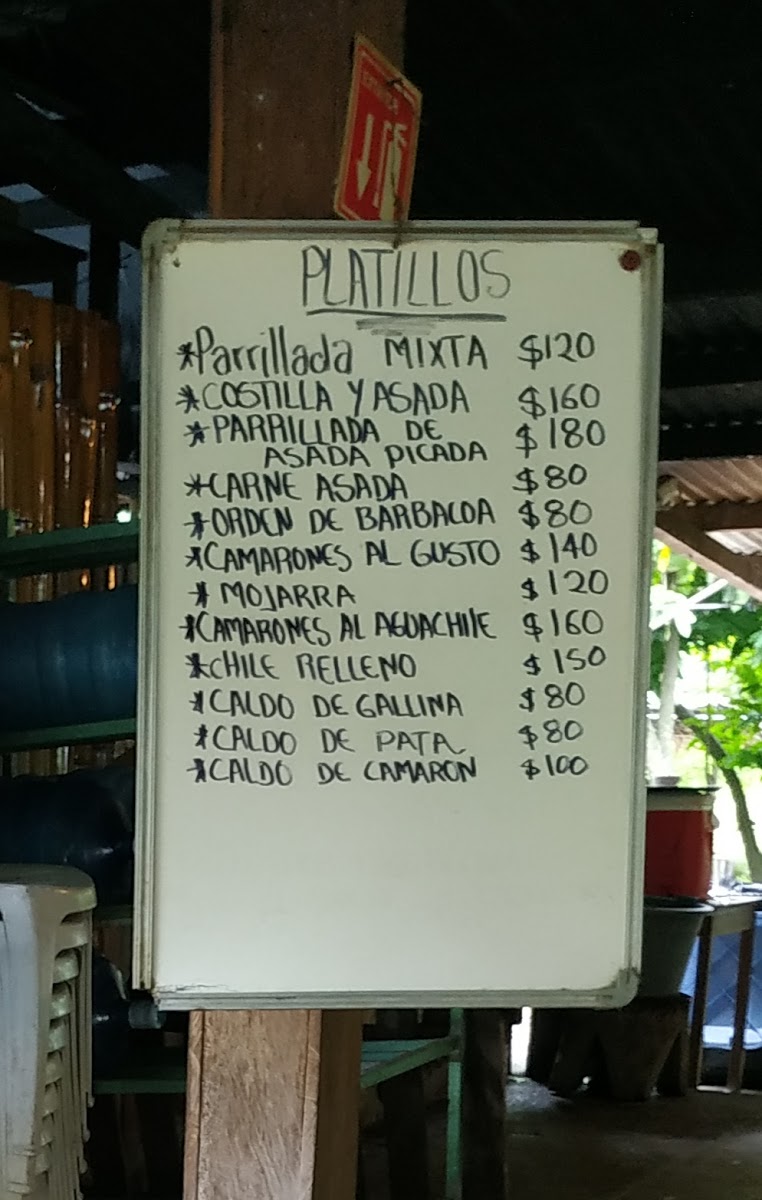 PLATILLOS
*Parrillada MIXTA $120
*COSTILLA Y ASADA $160
*PARRILLADA DE $180
ASADA PICADA
*CARNE ASADA $80
*ORDEN DE BARBACOA $80
*CAMARONES AL GUSTO $140
*MOJARRA $120
*CAMARONES AL AGUACHILE $160
*CHILE RELLENO $150
*CALDO DE GALLINA $80
*CALDO DE PATA $80
*CALDO DE CAMARON $100